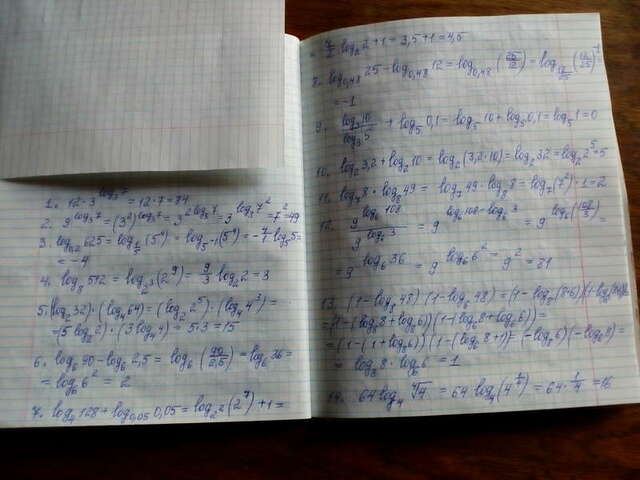 1. 12·3^{log_3 7} = 12·7 = 84
2. 9^{log_3 7} = (3²)^{log_3 7} = 3^{2log_3 7} = 3^{log_3 7²} = 7² = 49
3. log_{0,2} 625 = log_{1/5} (5⁴) = log_{5^{-1}} (5⁴) = -4/1 log_5 5 =
= -4
4. log_8 512 = log_{2^3} (2⁹) = 9/3 log_2 2 = 3
5. (log_2 32)·(log_4 64) = (log_2 2⁵)·(log_4 4³) =
= (5 log_2 2)·(3 log_4 4) = 5·3 = 15
6. log_6 90 - log_6 2,5 = log_6 (90/2,5) = log_6 36 =
= log_6 6² = 2
7. log_4 128 + log_{0,05} 0,05 = log_{2^2} (2⁷) + 1 =
= 7/2 log_2 2 + 1 = 3,5 + 1 = 4,5
8. log_{0,48} 25 - log_{0,48} 12 = log_{0,48} (25/12) = log_{12/25} (12/25)^{-1} =
= -1
9. log_3 10 / log_3 5 + log_5 0,1 = log_5 10 + log_5 0,1 = log_5 1 = 0
10. log_2 3,2 + log_2 10 = log_2 (3,2·10) = log_2 32 = log_2 2⁵ = 5
11. log_7 8 · log_8 49 = log_7 49 · log_8 8 = log_7 (7²)·1 = 2
12. 9^{log_6 108} / 9^{log_6 3} = 9^{log_6 108 - log_6 3} = 9^{log_6 (108/3)} =
= 9^{log_6 36} = 9^{log_6 6²} = 9² = 81
13. (1-log_8 48)(1-log_6 48) = (1-log_8 (8·6))(1-log_6 (8·6)) =
= (1-(log_8 8 + log_8 6))(1-(log_6 8 + log_6 6)) =
= (1-(1+log_8 6))(1-(log_6 8+1)) = (-log_8 6)(-log_6 8) =
= log_8 8 · log_6 6 = 1
14. 64 log_4 ⁴√4 = 64 log_4 (4^{1/4}) = 64·1/4 = 16